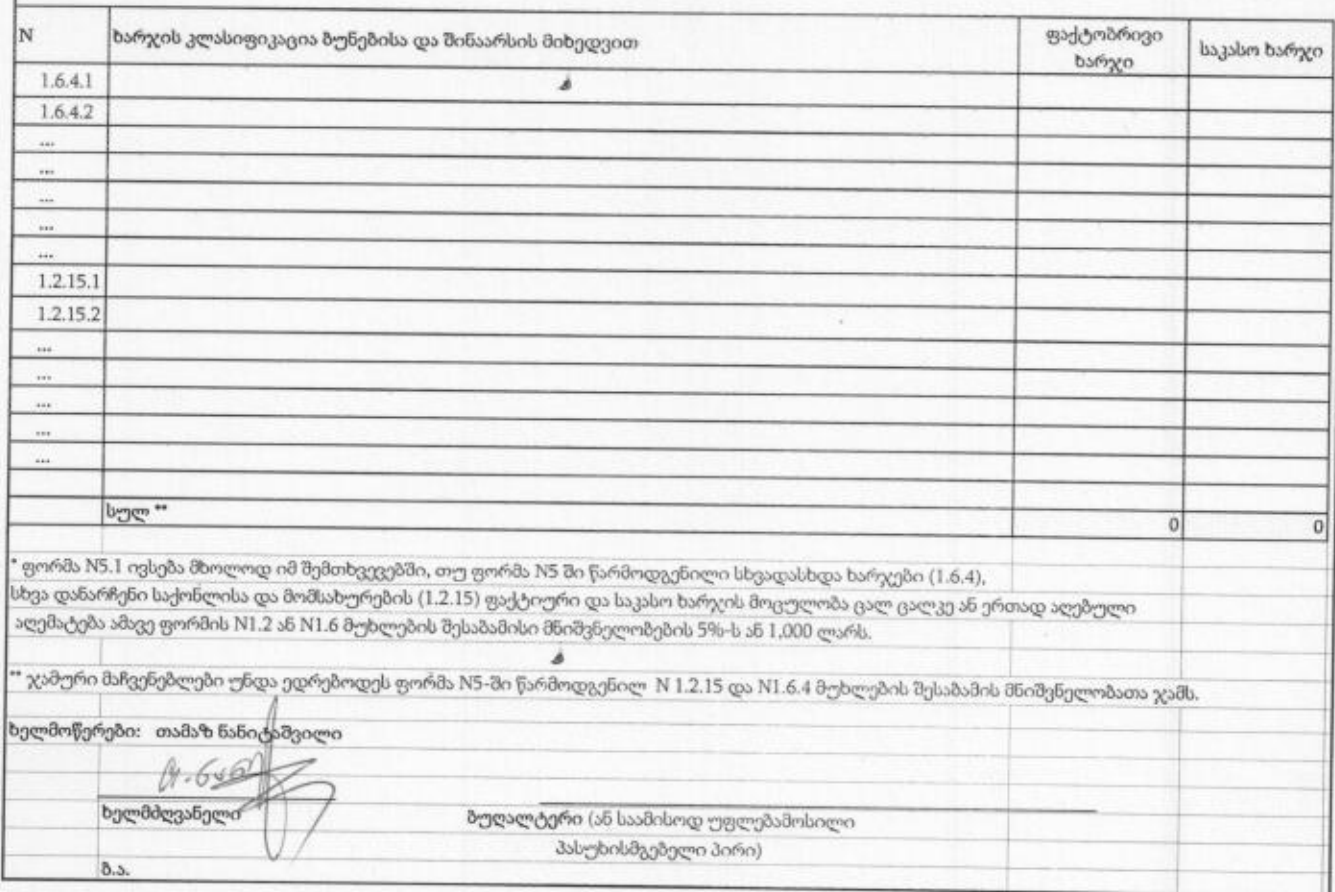 N ხარჯის კლასიფიკაცია ბუნებისა და შინაარსის მიხედვით ფაქტობრივი ხარჯი საკასო ხარჯი
1.6.4.1
1.6.4.2
...
...
...
...
...
1.2.15.1
1.2.15.2
...
...
...
...
...
სულ ** 0 0
* ფორმა N5.1 ივსება მხოლოდ იმ შემთხვევებში, თუ ფორმა N5 ში წარმოდგენილი სხვადასხდა ხარჯები (1.6.4),
სხვა დანარჩენი საქონლისა და მომსახურების (1.2.15) ფაქტიური და საკასო ხარჯის მოცულობა ცალ ცალკე ან ერთად აღებული
აღემატება ამავე ფორმის N1.2 ან N1.6 მუხლების შესაბამისი მნიშვნელობების 5%-ს ან 1,000 ლარს.
** ჯამური მაჩვენებლები უნდა ედრებოდეს ფორმა N5-ში წარმოდგენილ N 1.2.15 და N1.6.4 მუხლების შესაბამის მნიშვნელობათა ჯამს.
ხელმოწერები: თამაზ ნანიტაშვილი
ხელმძღვანელი ბუღალტერი (ან საამისოდ უფლებამოსილი
პასუხისმგებელი პირი)
ბ.ა.